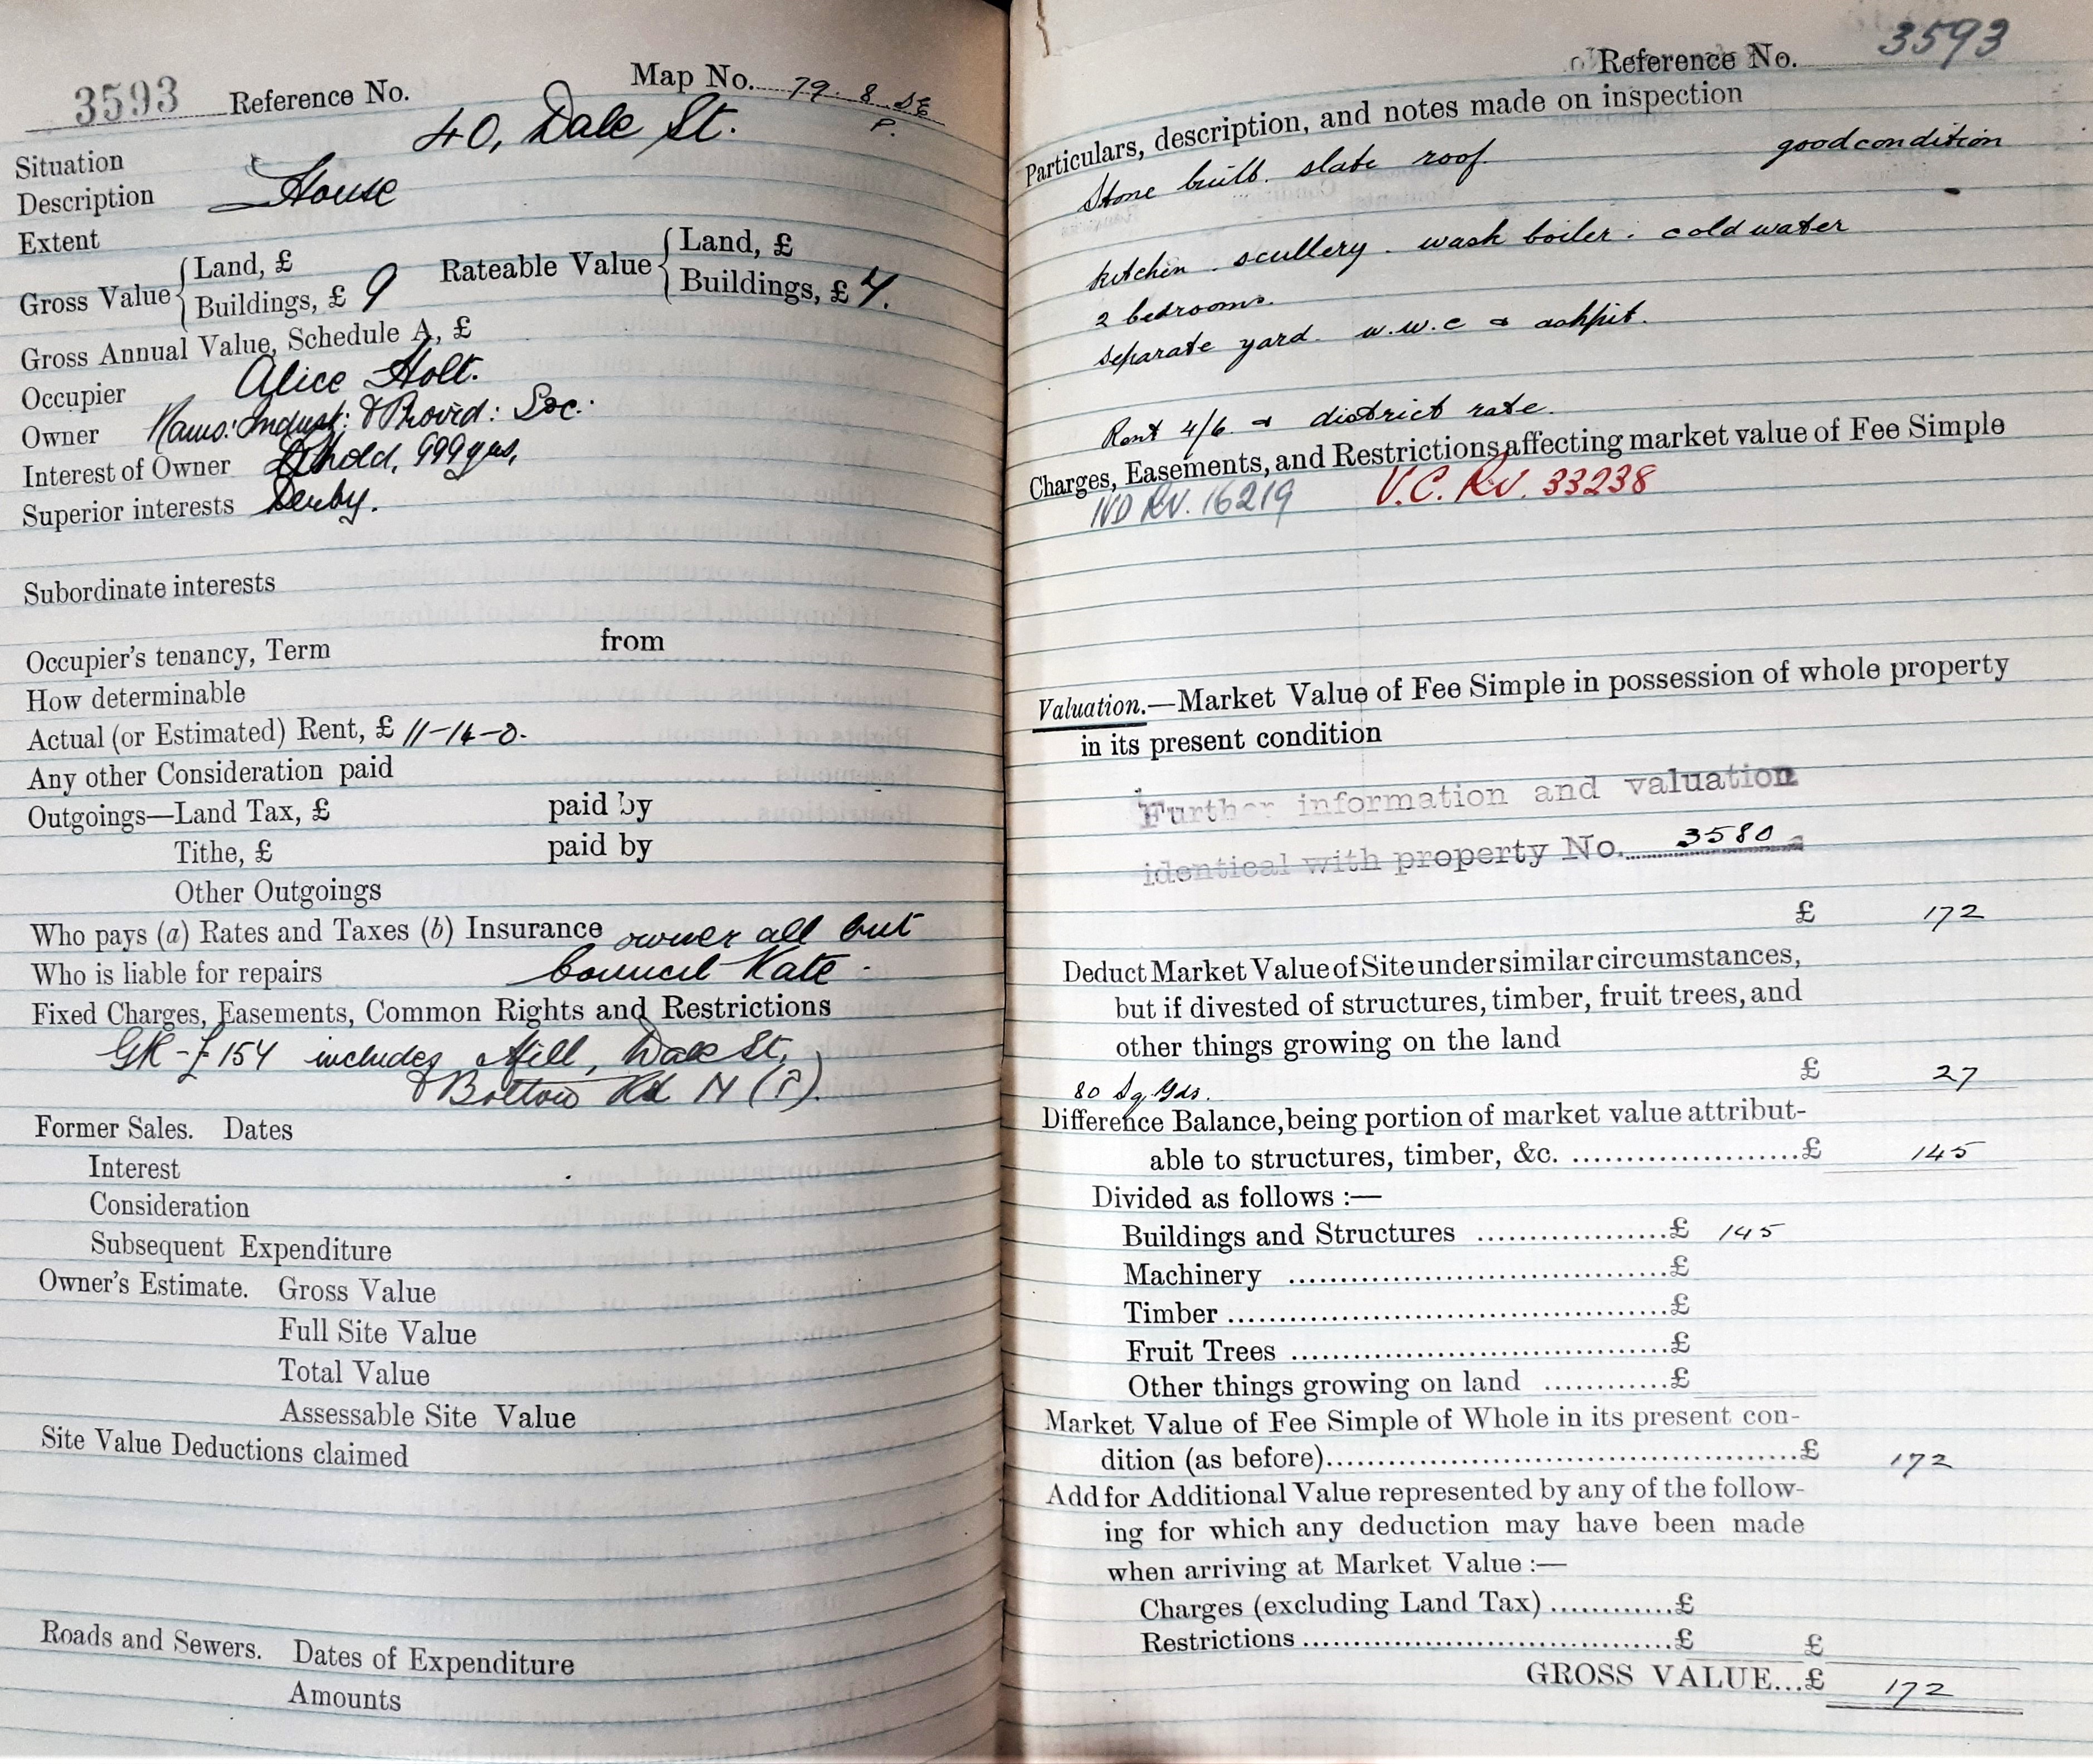 3593 Reference No. Map No. 79. 8. SE
P.
Situation 40, Dale St.
Description House
Extent
Gross Value { Land, £ Rateable Value { Land, £
Buildings, £ 9 Buildings, £ 7.
Gross Annual Value, Schedule A, £
Occupier Alice Holt.
Owner Indust: & Provid: Soc:
Interest of Owner L'hold, 999 yrs,
Superior interests Derby.
Subordinate interests
Occupier's tenancy, Term from
How determinable
Actual (or Estimated) Rent, £ 11-14-0.
Any other Consideration paid
Outgoings—Land Tax, £ paid by
Tithe, £ paid by
Other Outgoings
Who pays (a) Rates and Taxes (b) Insurance owner all but
Who is liable for repairs Council Rate.
Fixed Charges, Easements, Common Rights and Restrictions
GR - £154 includes Mill, Dale St,
& Bolton Rd N (P).
Former Sales. Dates
Interest
Consideration
Subsequent Expenditure
Owner's Estimate. Gross Value
Full Site Value
Total Value
Assessable Site Value
Site Value Deductions claimed
Roads and Sewers. Dates of Expenditure
Amounts
Reference No. 3593
Particulars, description, and notes made on inspection
Stone built. slate roof. good condition
kitchen. scullery. wash boiler. cold water
2 bedrooms.
separate yard. w.w.c & ashpit.
Rent 4/6. & district rate.
Charges, Easements, and Restrictions affecting market value of Fee Simple
IVD RV. 16219 V.C. RV. 33238
Valuation.—Market Value of Fee Simple in possession of whole property
in its present condition
Further information and valuation
identical with property No. 3580
£ 172
Deduct Market Value of Site under similar circumstances,
but if divested of structures, timber, fruit trees, and
other things growing on the land
£ 27
80 Sq. Yds.
Difference Balance, being portion of market value attribut-
able to structures, timber, &c. ....................£ 145
Divided as follows :—
Buildings and Structures ..................£ 145
Machinery ....................................£
Timber ..........................................£
Fruit Trees ....................................£
Other things growing on land ............£
Market Value of Fee Simple of Whole in its present con-
dition (as before)..............................................£ 172
Add for Additional Value represented by any of the follow-
ing for which any deduction may have been made
when arriving at Market Value :—
Charges (excluding Land Tax) ............£
Restrictions ....................................£ £
GROSS VALUE...£ 172